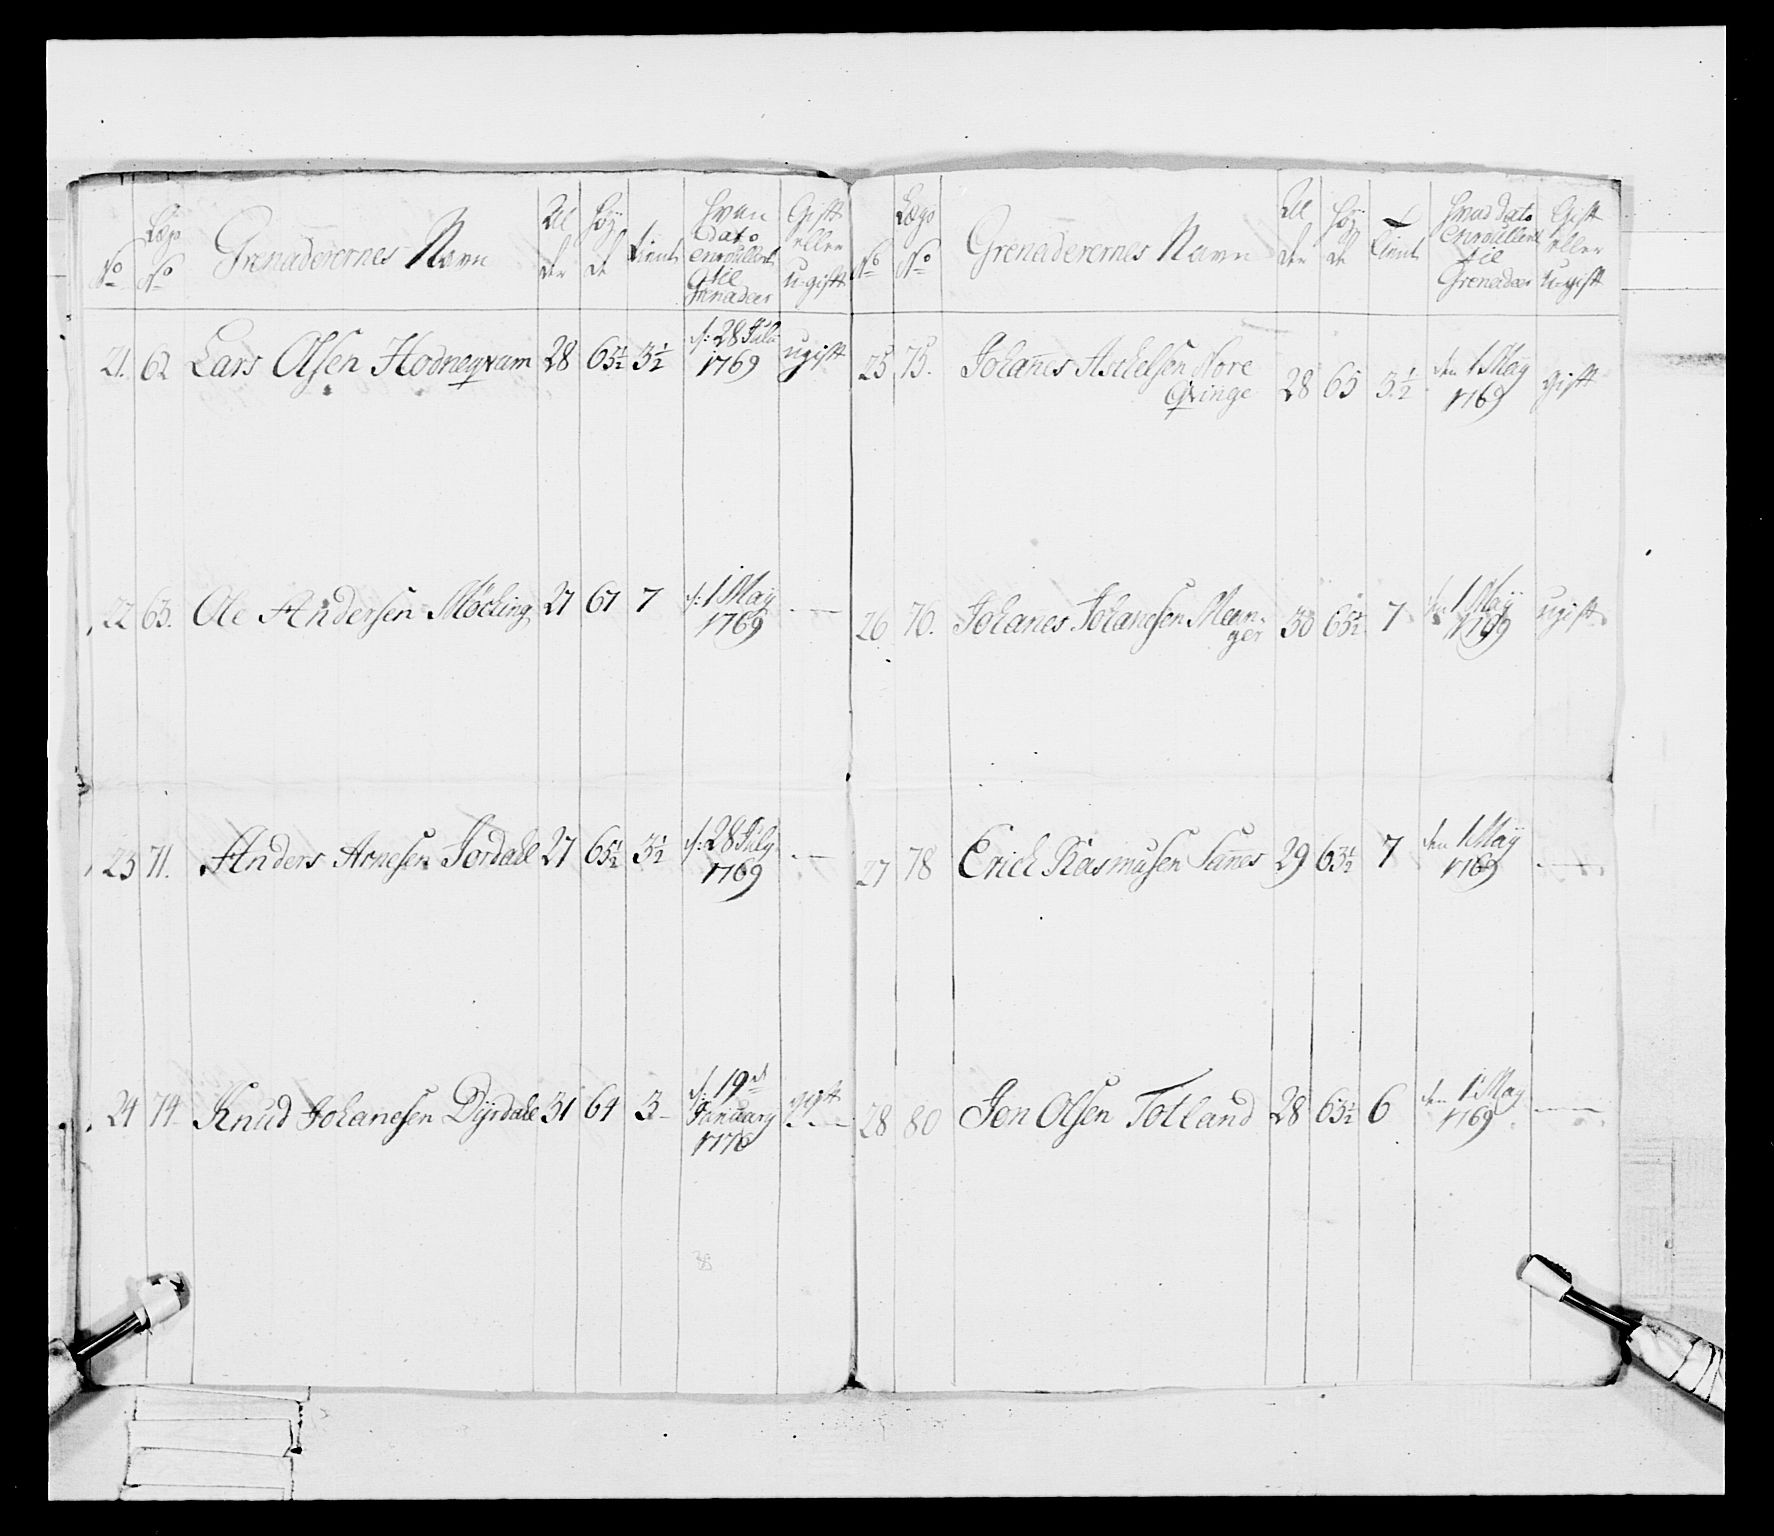 No
Lægs No
Grenaderernes Navn
Al der
Höy de
tient
Hvan dato enroullert til Grenadeer
Gift eller ugift
21. 62 Lars Olsen Hodneqvam 28 65½ 3½ d: 28 Juli 1769 ugift
22 63. Ole Andersen Möcling 27 67 7 d: 1 Maÿ 1769 . —
23 71. Anders Arnesen Jordall 27 65½ 3½ d: 28 July 1769 . —
24 74 Knud Johanesen Dÿrdall 31 64 3 d: 19d January 1770 gift
No
Lægs No
Grenaderernes Navn
Al der
Höy de
tient
Hvad dato enroullert til Grenadeer
Gift eller ugift
25 75. Johanes Aschelsen Nore
Qvinge 28 65 3½ den 1 Maÿ 1769 gift
26 76. Johanes Johanesen Mann-
ger 30 65½ 7 den 1 Maÿ 1769 ugift
27 78 Erich Rasmusen Sanes 29 63½ 7 den 1 Maÿ 1769 . —
28 80 Jon Olsen Totland 28 65½ 6 den 1 May 1769 —